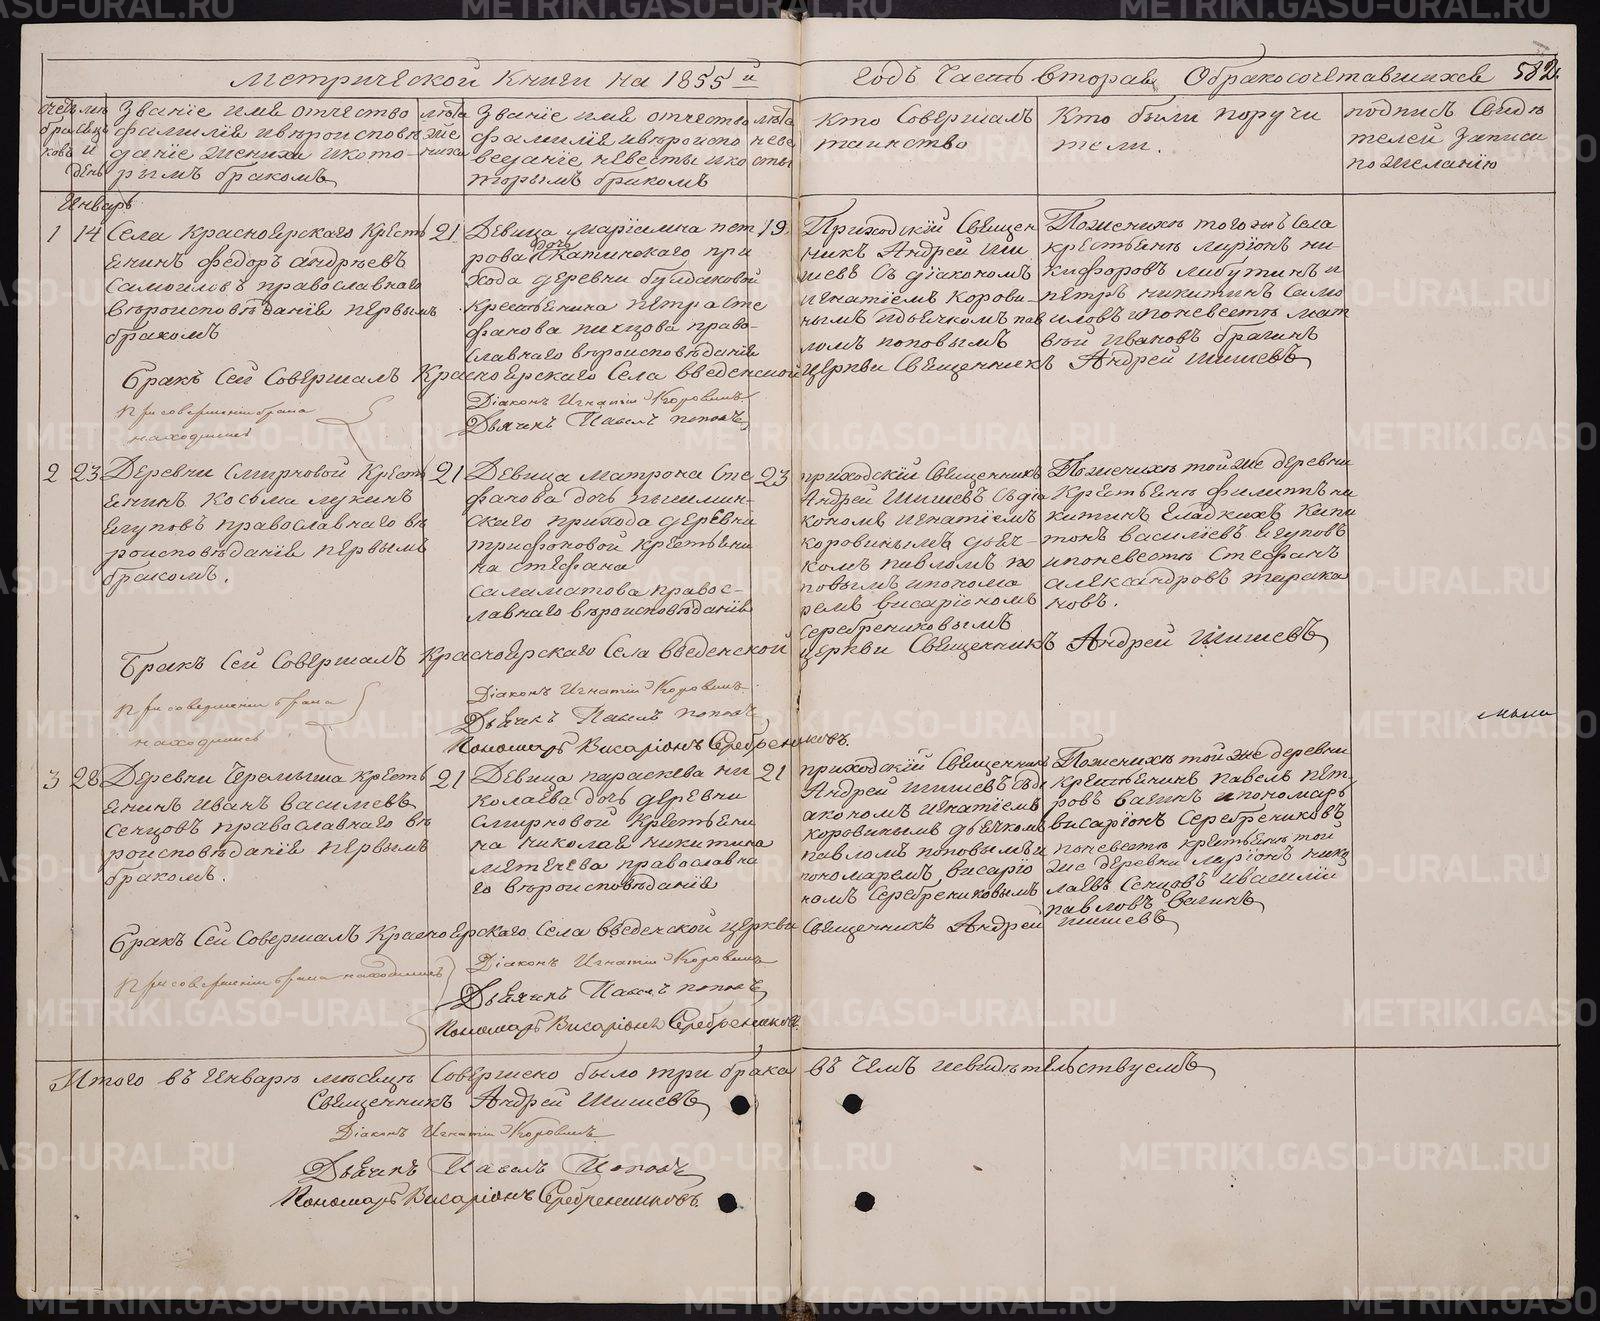 Метрической книги на 1855 й годъ Часть вторая О бракосочетавшихся 582.
Счетъ браковъ
мѣсецъ и день
Званіе имя отчество
фамилія и вѣроисповѣ
даніе жениха и кото-
рымъ бракомъ
лѣта же
ниха
Званіе имя отчество
фамилія и вѣроиспо
веданіе невесты и ко
торымъ бракомъ
лѣта
неве
сты
Кто Совершалъ
таинство
Кто были поручи
тели.
подпись Свидѣ
телей записи
по желанію
Январь
1
14
Села Красноярского Кресть
янинъ Федоръ Андрѣевъ
Самоиловъ православнаго
вѣроисповѣданія первымъ
бракомъ
21
Девица Маріамна пет
рова дочь Окатинскаго при
хода деревни булдаковой
Крестьянина Петра Сте
фанова пикцова право-
славнаго вѣроисповѣданія
19
Приходскій Священ
никъ Андрей Ши
шевъ Съ діакономъ
игнатіемъ Корови-
нымъ и дьячкомъ пав
ломъ поповымъ
По женихѣ того жъ Села
крестьяне ларіонъ ни
кифоровъ лабутинъ и
петръ никитинъ Само
иловъ и по невестѣ мат
вѣй ивановъ брагинъ
бракъ Сей Совершалъ Красноярскаго Села введенской церкви Священникъ Андрей Шишевъ
При совершеніи брака
находились
Діаконъ Игнатій Коровинъ
Дьячекъ Павелъ поповъ
2
23
Деревни Смирновой Кресть
янинъ Косьма лукинъ
Ягуповъ православнаго вѣ
роисповѣданія первымъ
бракомъ.
21
Девица Матрона Сте
фанова дочь пышмин-
скаго прихода деревни
трифоновой крестьяни
на Стефана
Саламатова правос-
лавнаго вѣроисповѣданія
23
приходскій Священникъ
Андрей Шишевъ Съ діа
кономъ игнатіемъ
коровинымъ дьяч-
комъ павломъ по
повымъ и понома
ремъ висаріономъ
Серебрениковымъ
По женихѣ той же деревни
Крестьяне филиппъ ни
китинъ Гладкихъ Капи
тонъ василіевъ Ягуповъ
и по невестѣ Стефанъ
александровъ тарака
новъ.
Бракъ Сей Совершалъ Красноярскаго Села введенской церкви Священникъ Андрей Шишевъ
При совершеніи брака
находились
Діаконъ Игнатій Коровинъ
Дьячекъ Павелъ поповъ
Пономарь Висаріонъ Серебрениковъ.
3
28
Деревни Черемыша кресть
янинъ иванъ василіевъ
Сенцовъ православнаго вѣ
роисповѣданія первымъ
бракомъ.
21
Девица параскева ни
колаева дочь деревни
Смирновой крестьяни
на николая никитина
метечева православна
го вѣроисповѣданія
21
приходскій Священникъ
Андрей Шишевъ Съ ді
акономъ игнатіемъ
коровинымъ дьячкомъ
павломъ поповымъ и
пономаремъ висаріо
номъ Серебрениковымъ
По женихѣ той же деревни
крестьянинъ павелъ пет-
ровъ вагинъ и пономарь
висаріонъ Серебрениковъ
по невестѣ крестьяне той
же деревни ларіонъ нико
лаевъ Сенцовъ и василіи
павловъ вагинъ
бракъ Сей Совершалъ Красноярскаго Села введенской церкви Священникъ Андрей Шишевъ
При совершеніи брака находились
Діаконъ Игнатій Коровинъ
Дьячекъ Павелъ поповъ
Пономарь Висаріонъ Серебрениковъ.
Итого въ Январѣ мѣсяцѣ Совершено было три брака въ чемъ и свидѣтельствуемъ
Священникъ Андрей Шишевъ
Діаконъ Игнатій Коровинъ
Дьячекъ Павелъ Поповъ
Пономарь Висаріонъ Серебрениковъ.
METRIKI.GASO-URAL.RU